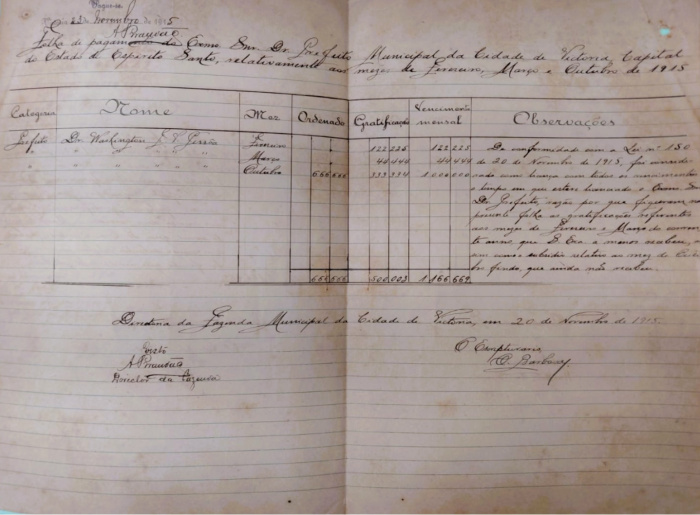 Pague-se
23 Novembro de 1915
Folha de pagamento do Exmo Snr. Dr. Prefeito Municipal da Cidade de Victoria, Capital
do Estado do Espirito Santo, relativamente aos mezes de Fevereiro, Março e Outubro de 1915
Categoria Nome Mez Ordenado Gratificação Vencimento mensal Observações
Prefeito Dr. Washington Pessôa Fevereiro 122.225 122.225
" " " " Março 44.444 44.444
" " " " Outubro 666.666 333.334 1.000.000
666.666 500.003 1.166.669
De conformidade com a Lei nº 150
de 20 de Novembro de 1915, foi
com licença com todos os vencimentos
o tempo em que esteve licenciado o Exmo Sr.
Dr. Prefeito, razão por que figuram na
presente folha as gratificações referentes
aos mezes de Fevereiro e Março do corren-
te anno, que S. Exa a menos recebeu,
em como o subsidio relativo ao mez de Outu-
bro findo, que ainda não recebeu.
Directoria da Fazenda Municipal da Cidade de Victoria, em 20 de Novembro de 1915.
Visto
Director da Fazenda
O Escripturario
Barbosa